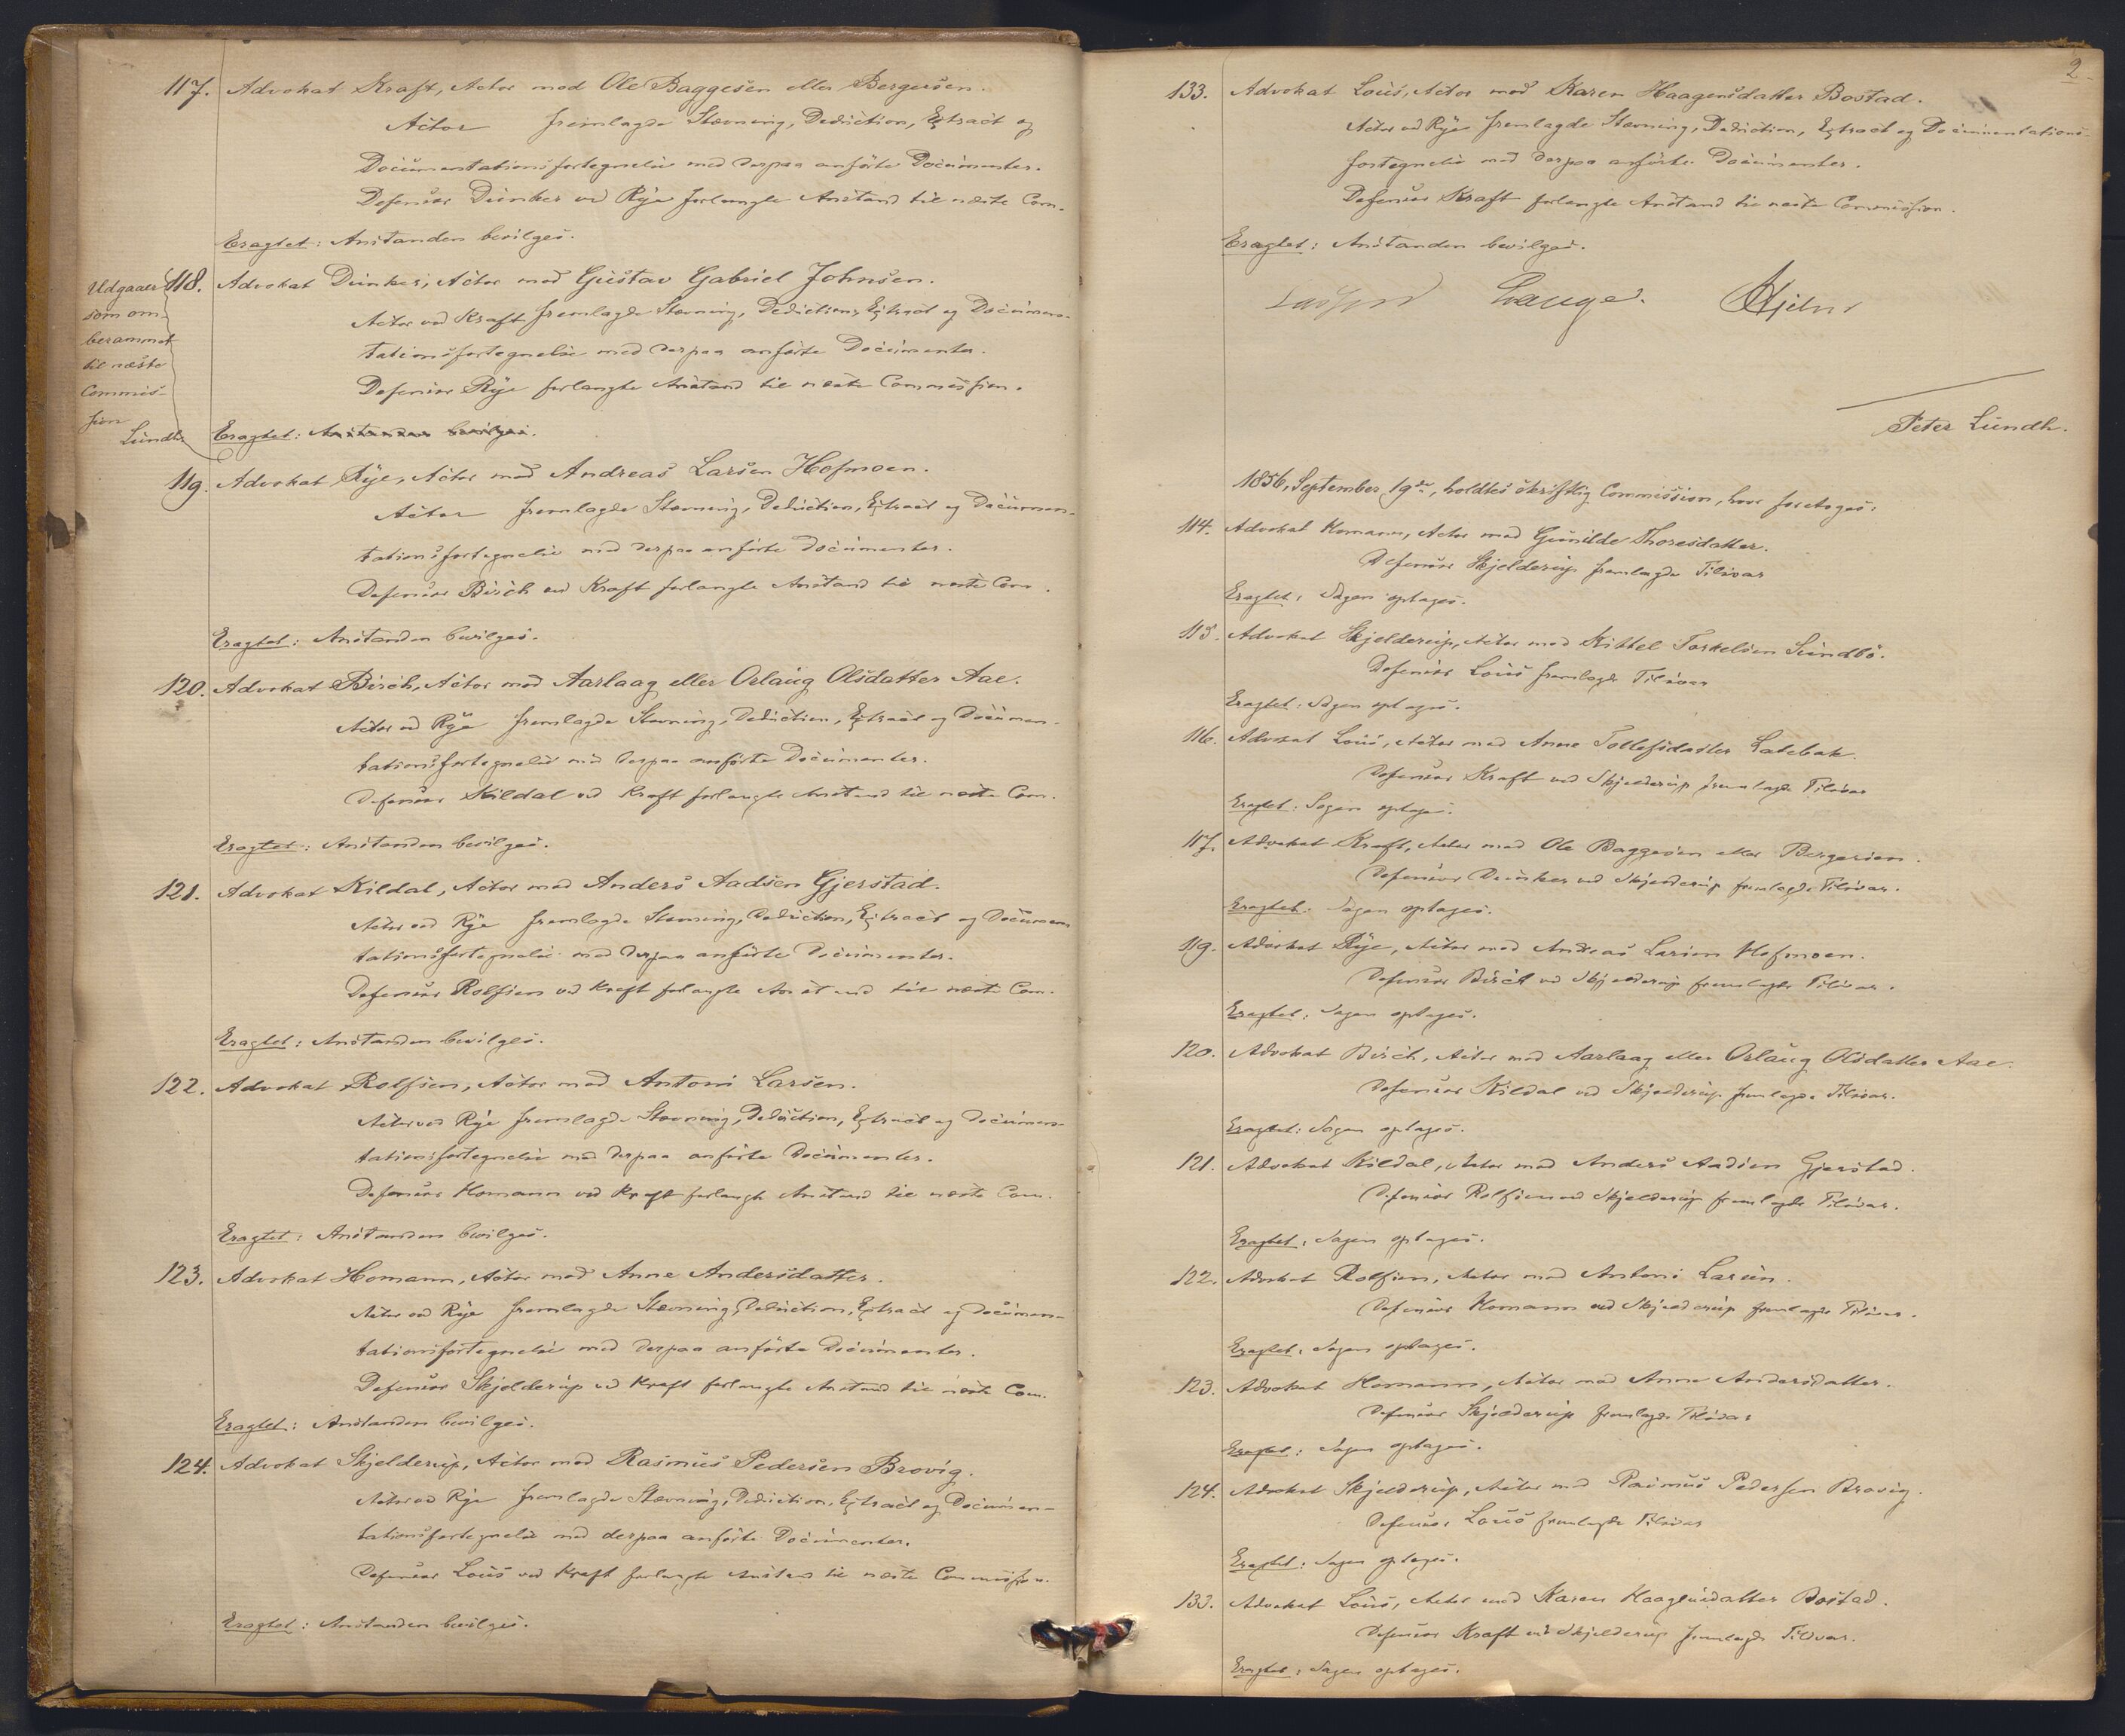 117. Advokat Kraft, Actor mod Ole Baggesen eller Bergersen.
Actor fremlagde Stævning, Deduction, Extract og
Documentationsfortegnelse med derpaa anførte Documenter.
Defensor Dunker ved Rye forlangte Anstand til næste Com.
Eragtet: Anstanden bevilges.
Udgaaer
som om-
berammet
til næste
Commis-
sion
Lundh
118. Advokat Dunker, Actor mod Gustav Gabriel Johnsen.
Actor ved Kraft fremlagde Stævning, Deduction, Extract og Documen-
tationsfortegnelse med derpaa anførte Documenter.
Defensor Rye forlangte Anstand til næste Commission.
Eragtet: Anstanden bevilges.
119. Advokat Rye, Actor mod Andreas Larsen Hofmoen.
Actor fremlagde Stævning, Deduction, Extract og Documen-
tationsfortegnelse med derpaa anførte Documenter.
Defensor Birch ved Kraft forlangte Anstand til næste Com.
Eragtet: Anstanden bevilges.
120. Advokat Birch, Actor mod Aarlaag eller Orlaug Olsdatter Aae.
Actor ved Rye fremlagde Stævning, Deduction, Extract og Documen-
tationsfortegnelse med derpaa anførte Documenter.
Defensor Kildal ved Kraft forlangte Anstand til næste Com.
Eragtet: Anstanden bevilges.
121. Advokat Kildal, Actor mod Anders Aadsen Gjerstad.
Actor ved Rye fremlagde Stævning, Deduction, Extract og Documen
tationsfortegnelse med derpaa anførte Documenter.
Defensor Rolfsen ved Kraft forlangte Anstand til næste Com.
Eragtet: Anstanden bevilges.
122. Advokat Rolfsen, Actor mod Antoni Larsen.
Actor ved Rye fremlagde Stævning, Deduction, Extract og Documen-
tationsfortegnelse med derpaa anførte Documenter.
Defensor Homann ved Kraft forlangte Anstand til næste Com.
Eragtet: Anstanden bevilges.
123. Advokat Homann, Actor mod Anne Andersdatter.
Actor ved Rye fremlagde Stævning, Deduction, Extract og Documen-
tationsfortegnelse med derpaa anførte Documenter.
Defensor Skjelderup ved Kraft forlangte Anstand til næste Com.
Eragtet: Anstanden bevilges.
124. Advokat Skjelderup, Actor mod Rasmus Pedersen Brovig.
Actor ved Rye fremlagde Stævning, Deduction, Extract og Documen-
tationsfortegnelse med derpaa anførte Documenter.
Defensor Lous ved Kraft forlangte Anstand til næste Commission.
Eragtet: Anstanden bevilges.
2
133. Advokat Lous, Actor mod Karen Haagensdatter Bostad.
Actor ved Rye fremlagde Stævning, Deduction, Extract og Documentations-
fortegnelse med derpaa anførte Documenter.
Defensor Kraft forlangte Anstand til næste Commission.
Eragtet: Anstanden bevilges.
Lange. Hjelm
Peter Lundh.
1856, September 19de, holdtes skriftlig Commission, hvor foretoges:
114. Advokat Homann, Actor mod Gunilde Thoresdatter.
Defensor Skjelderup fremlagde Tilsvar
Eragtet: Sagen optages.
115. Advokat Skjelderup, Actor mod Kittel Torkelsen Sundbø.
Defensor Lous fremlagde Tilsvar
Eragtet: Sagen optages.
116. Advokat Lous, Actor mod Anne Tollefsdatter Latebak.
Defensor Kraft ved Skjelderup fremlagde Tilsvar
Eragtet: Sagen optages.
117. Advokat Kraft, Actor mod Ole Baggesen eller Bergersen.
Defensor Dunker ved Skjelderup fremlagde Tilsvar.
Eragtet: Sagen optages.
119. Advokat Rye, Actor mod Andreas Larsen Hofmoen.
Defensor Birch ved Skjelderup fremlagde Tilsvar.
Eragtet: Sagen optages.
120. Advokat Birch, Actor mod Aarlaag eller Orlaug Olsdatter Aae.
Defensor Kildal ved Skjelderup fremlagde Tilsvar.
Eragtet: Sagen optages.
121. Advokat Kildal, Actor mod Anders Aadsen Gjerstad.
Defensor Rolfsen ved Skjelderup fremlagde Tilsvar.
Eragtet: Sagen optages.
122. Advokat Rolfsen, Actor mod Antoni Larsen.
Defensor Homann ved Skjelderup fremlagde Tilsvar.
Eragtet: Sagen optages.
123. Advokat Homann, Actor mod Anne Andersdatter.
Defensor Skjelderup fremlagde Tilsvar
Eragtet: Sagen optages.
124. Advokat Skjelderup, Actor mod Rasmus Pedersen Brovig.
Defensor Lous fremlagde Tilsvar
Eragtet: Sagen optages.
133. Advokat Lous, Actor mod Karen Haagensdatter Bostad.
Defensor Kraft ved Skjelderup fremlagde Tilsvar.
Eragtet: Sagen optages.